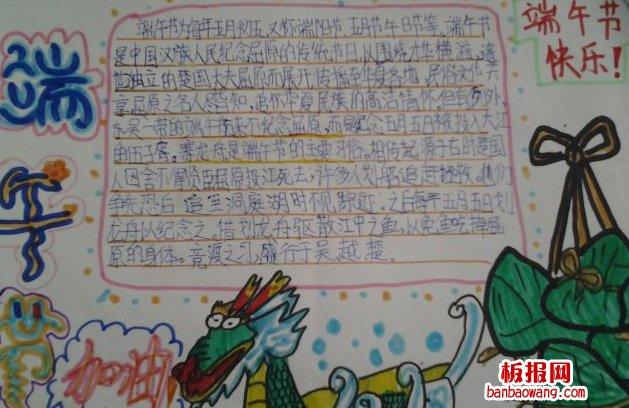 端午节
端午节快乐！
端午节为每年五月初五,又称端阳节,五月节,午日节等。端午节
是中国汉族人民纪念屈原的传统节日,以围绕才华横溢、遗
世独立的楚国大夫屈原而展开,传播至华夏各地,民俗文化共
享,屈原之名人尽皆知,追怀华夏民族的高洁情怀。但也有例外,
东吴一带的端午节不纪念屈原,而是纪念五月五日被投入大江
的伍子胥。赛龙舟是端午节的主要习俗。相传起源于古时楚国
人因舍不得贤臣屈原投江死去,许多人划船追赶拯救。他们
争先恐后,追至洞庭湖时不见踪迹。之后每年五月五日划
龙舟以纪念之。借划龙舟驱散江中之鱼,以免鱼吃掉屈
原的身体。竞渡之习,盛行于吴、越、楚。
加油
板报网
banbaowang.com